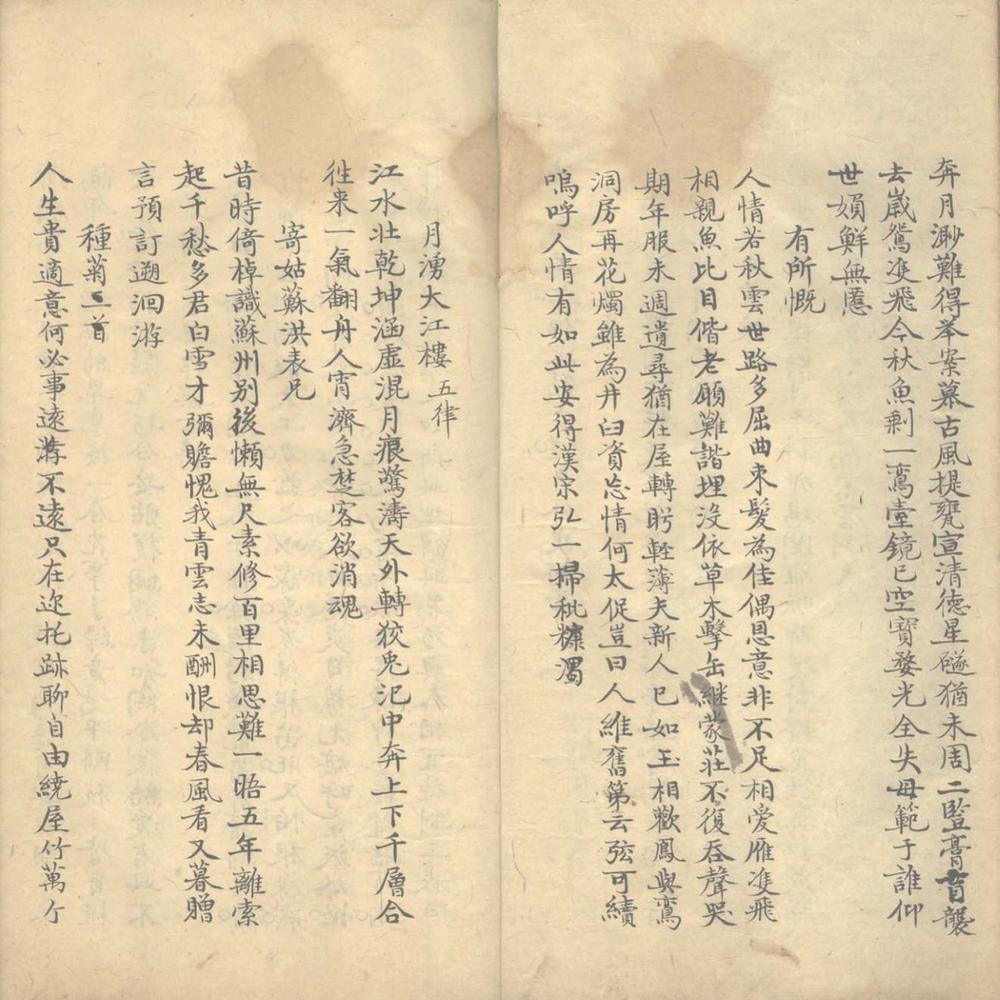 奔月渺難得举案慕古風提甕宣清德星燧猶未周二豎膏肓襲
去歲鴛雙飛今秋魚剩一鸞臺鏡已空寶婺光全失母範于誰仰
世媍鮮無慝
有所慨
人情若秋雲世路多屈曲束髮為佳偶恩意非不足相愛雁雙飛
相親魚比目偕老願難諧埋沒依草木擊缶継蒙莊不復吞聲哭
期年服未週遺尋猶在屋轉盻輕薄夫新人已如玉相歡鳳與鸞
洞房再花燭雖為井臼資忘情何太促豈曰人維舊第云弦可續
嗚呼人情有如此安得漢宋弘一掃秕糠濁
月湧大江樓 五律
江水壯乾坤涵虛混月痕驚濤天外轉狡兎氾中奔上下千層合
徃来一氣翻舟人宵濟急楚客欲消魂
寄姑蘇洪表兄
昔時倚棹識蘇州别後懶無尺素修百里相思難一晤五年離索
起千愁多君白雪才彌贍愧我青雲志未酬恨却春風看又暮贈
言預訂遡洄游
種菊二首
人生貴適意何必事遠游不遠只在迩托跡聊自由繞屋竹萬个